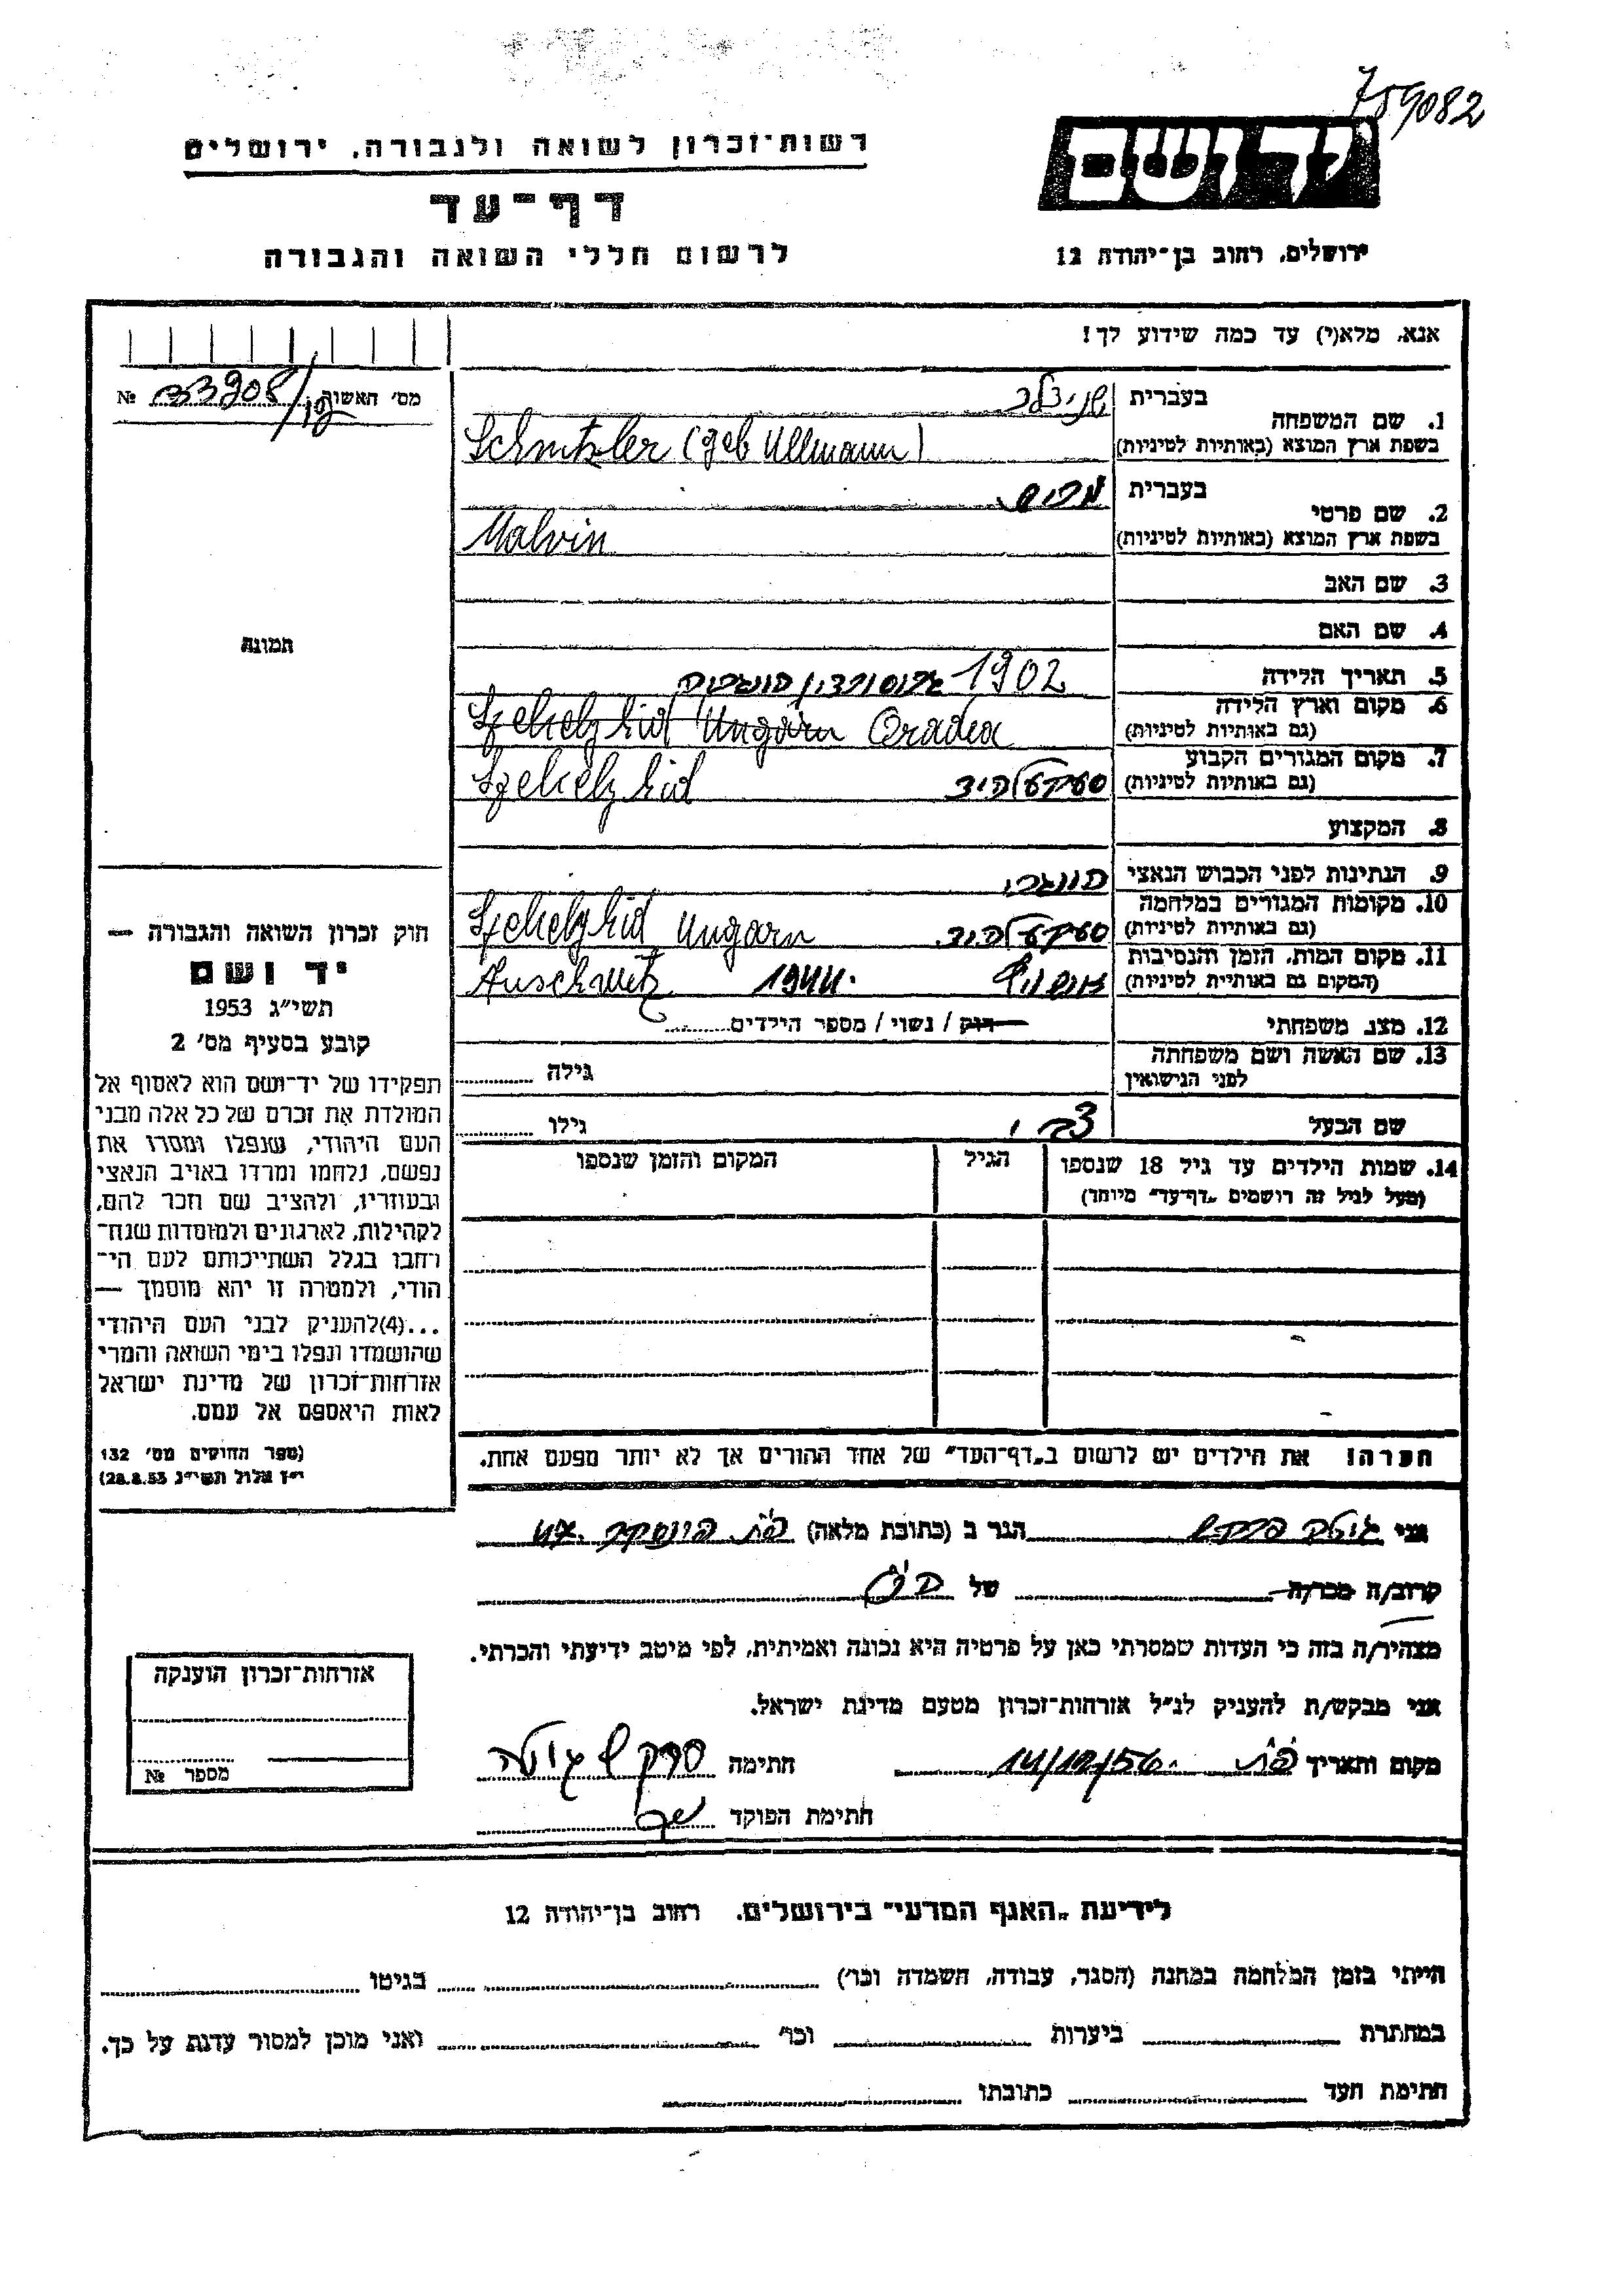 759082
יד ושם
רשות־זכרון לשואה ולגבורה, ירושלים
דף־עד
לרשום חללי השואה והגבורה
ירושלים, רחוב בן־יהודה 12
אנא, מלא(י) עד כמה שידוע לך!
מס' האשוה 33908/ № 
1. שם המשפחה
בעברית שניצלר
בשפת ארץ המוצא (באותיות לטיניות) Schnitzler (geb Ullmann)
2. שם פרטי
בעברית
בשפת ארץ המוצא (באותיות לטיניות) Malvin
3. שם האב
4. שם האם
5. תאריך הלידה 1902
6. מקום וארץ הלידה
(גם באותיות לטיניות) Szekelyhid Ungarn Oradea
7. מקום המגורים הקבוע
(גם באותיות לטיניות) סעקעלהיד Szekelyhid
8. המקצוע
9. הנתינות לפני הכבוש הנאצי
10. מקומות המגורים במלחמה
(גם באותיות לטיניות) סעקעלהיד Szekelyhid Ungarn
11. מקום המות, הזמן והנסיבות
(המקום גם באותיית לטיניות) אושוויץ 1944. Auschwitz
12. מצב משפחתי רוק / נשוי / מספר הילדים
13. שם האשה ושם משפחתה
לפני הנישואין
גילה
שם הבעל צבי
גילו
14. שמות הילדים עד גיל 18 שנספו
(מעל לגיל זה רושמים „דף־עד" מיוחד)
הגיל
המקום והזמן שנספו
הערה! את הילדים יש לרשום ב„דף־העד" של אחד ההורים אך לא יותר מפעם אחת.
תמונה
חוק זכרון השואה והגבורה —
יד ושם
תשי"ג 1953
קובע בסעיף מס' 2
תפקידו של יד־ושם הוא לאסוף אל
המולדת את זכרם של כל אלה מבני
העם היהודי, שנפלו ומסרו את
נפשם, נלחמו ומרדו באויב הנאצי
ובעוזריו, ולהציב שם וזכר להם,
לקהילות, לארגונים ולמוסדות שנח־
רחבו בגלל השתייכותם לעם הי־
הודי, ולמטרה זו יהא מוסמך —
...(4)להעניק לבני העם היהודי
שהושמדו ונפלו בימי השואה והמרי
אזרחות־זכרון של מדינת ישראל
לאות היאספם אל עמם.
(ספר החוקים מס' 132
י"ז אלול תשי"ג 28.8.53)
אני הגר ב (כתובת מלאה)
קרוב/ה מכר/ה של
מצהיר/ה בזה כי העדות שמסרתי כאן על פרטיה היא נכונה ואמיתית, לפי מיטב ידיעתי והכרתי.
אני מבקש/ת להעניק לנ"ל אזרחות־זכרון מטעם מדינת ישראל.
מקום ותאריך 14/12/56. חתימה
חתימת הפוקד
אזרחות־זכרון הוענקה
מספר №
לידיעת „האגף המדעי" בירושלים, רחוב בן־יהודה 12
הייתי בזמן המלחמה במחנה (הסגר, עבודה, השמדה וכו') בגיטו
במחתרת ביערות וכו' ואני מוכן למסור עדות על כך.
חתימת העד כתובתו